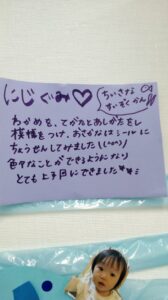 にじぐみ♡
ちいさな
すいぞくかん
わかめを、てがたとあしがたをし
模様をつけ、おさかなはシールに
ちょうせんしてみました(^o^)
色々なことができるようになり
とても上手にできました